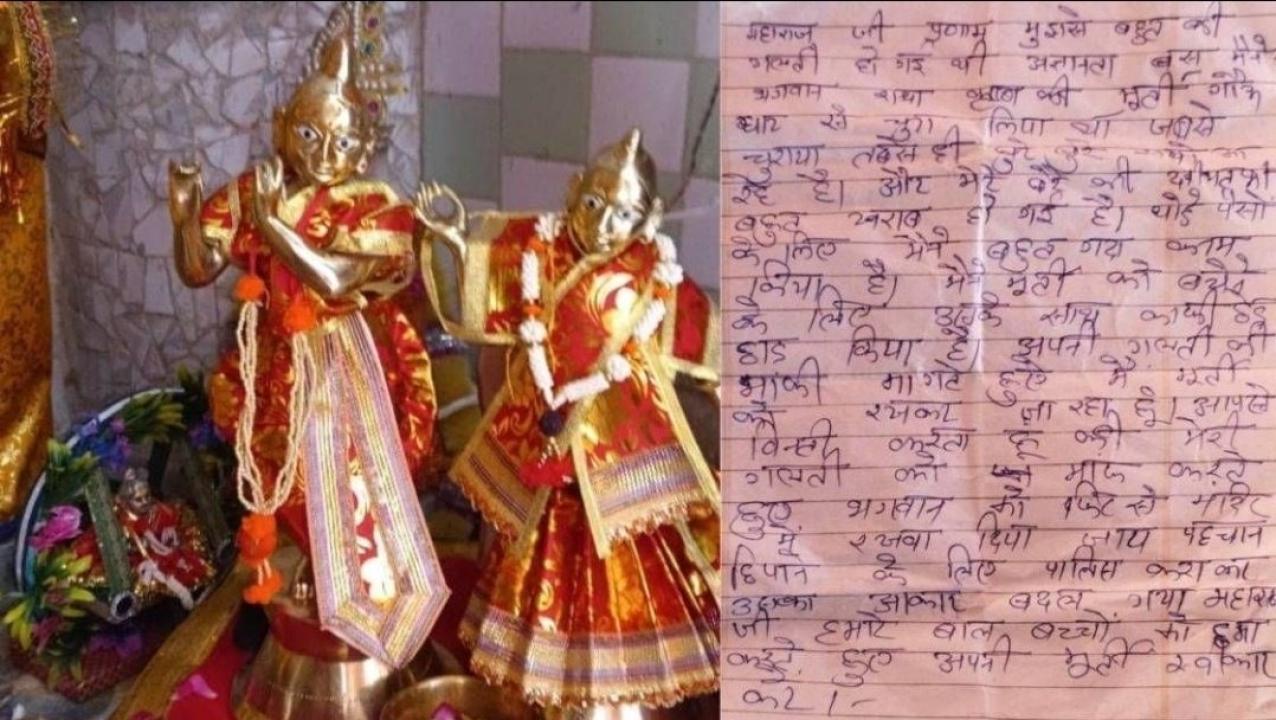 महाराज जी प्रणाम मुझसे बहुत बड़ी
गलती हो गई थी अज्ञानता बस मैने
भगवान राधा कृष्ण की मूर्ती गौके
घाट से चुरा लिया था जबसे
चुराया तबसे ही बुरे बुरे
रहे है। और मेरे बेटे की
बहुत खराब हो गई है। थोडे पैसो
के लिए मैने बहुत गंदा काम
किया है। मैने मूर्ती को बेचने
के लिए उसके साथ काफी छेड़
छाड़ किया है। अपनी गलती की
माफी मागते हुए मै मूर्ती
को रखकर जा रहा हूं। आपसे
विन्ती करता हूं की मेरी
गलती को माफ करते
हुए भगवान को फिर से मंदिर
में रखवा दिया जाय पहचान
छिपाने के लिए पालिस कराकर
उसका आकार बदल गया महाराज
जी हमारे बाल बच्चो को क्षमा
करते हुए अपनी मूर्ती स्वीकार
करे।-